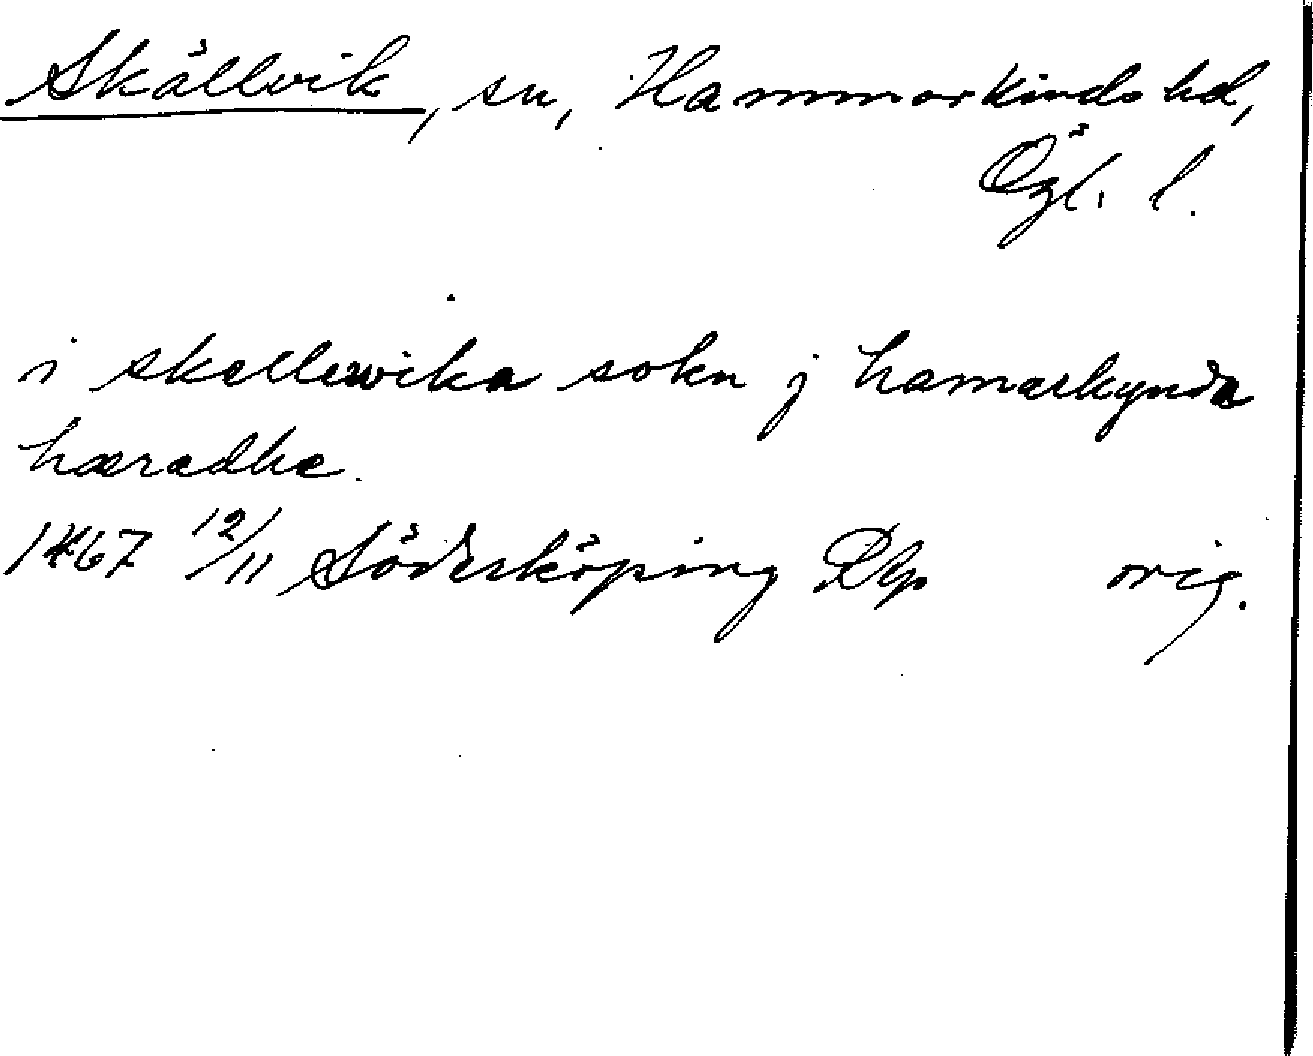 Skällvik, sn, Hammarkinds hd,
Ögl. l.
i skellewika sokn j hamarkynda
hæradhe.
1467 12/11 Söderköping Rp orig.